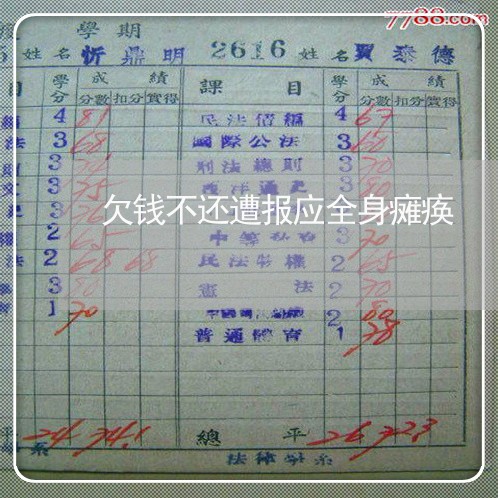 7788.com
學期
姓名 忻鼎明 2616 姓名 賈泰德
目 學分 成績 課目 學分 成績
分數 扣分 實得 分數 扣分 實得
4 81 民法債編 4 67
法 3 68 國際公法 3 60
3 刑法總則 3 70
3 75 西洋通史 3
欠钱不还遭报应全身瘫痪
2 65 3 70
法 2 68 68 民法物權 2 65
3 80 憲法 2 70
1 70 2 80
普通體育 1 78
24 74.1 總平 26 72.3
系 法律學系